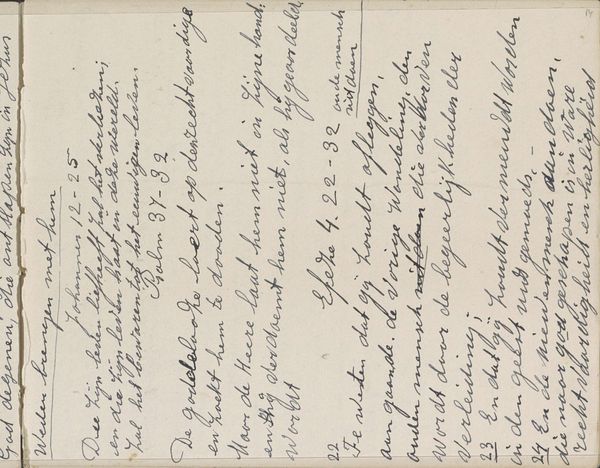 God degenen, die ontslapen zijn in Jezus
Weder brengen met hem
Johannes 12-25
Die zijn leven liefheeft zal het verliezen;
en die zijn leven haat in deze wereld.
zal het bewaren tot het eeuwigen leven.
Psalm 37-32
De goddelooze loert op den rechtvaardige
en zoekt hem te dooden.
Maar de Heere laat hem niet in zijne hand.
en Hij verdoemt hem niet, als hij geoordeeld
wordt
Efeze 4. 22-32
oude mensch
uitdoen
22
Te weten dat gij zoudt afleggen,
aangaande de vorige Wandeling, den
ouden mensch die verdorven
wordt door de begeerlijkheden der
verleiding;
23 En dat gij zoudt vernieuwd worden
in den geest uws gemoeds. -
24 En de nieuwe mensch aandoen,
die naar god geschapen is in ware
rechtvaardigheit en heiligheid